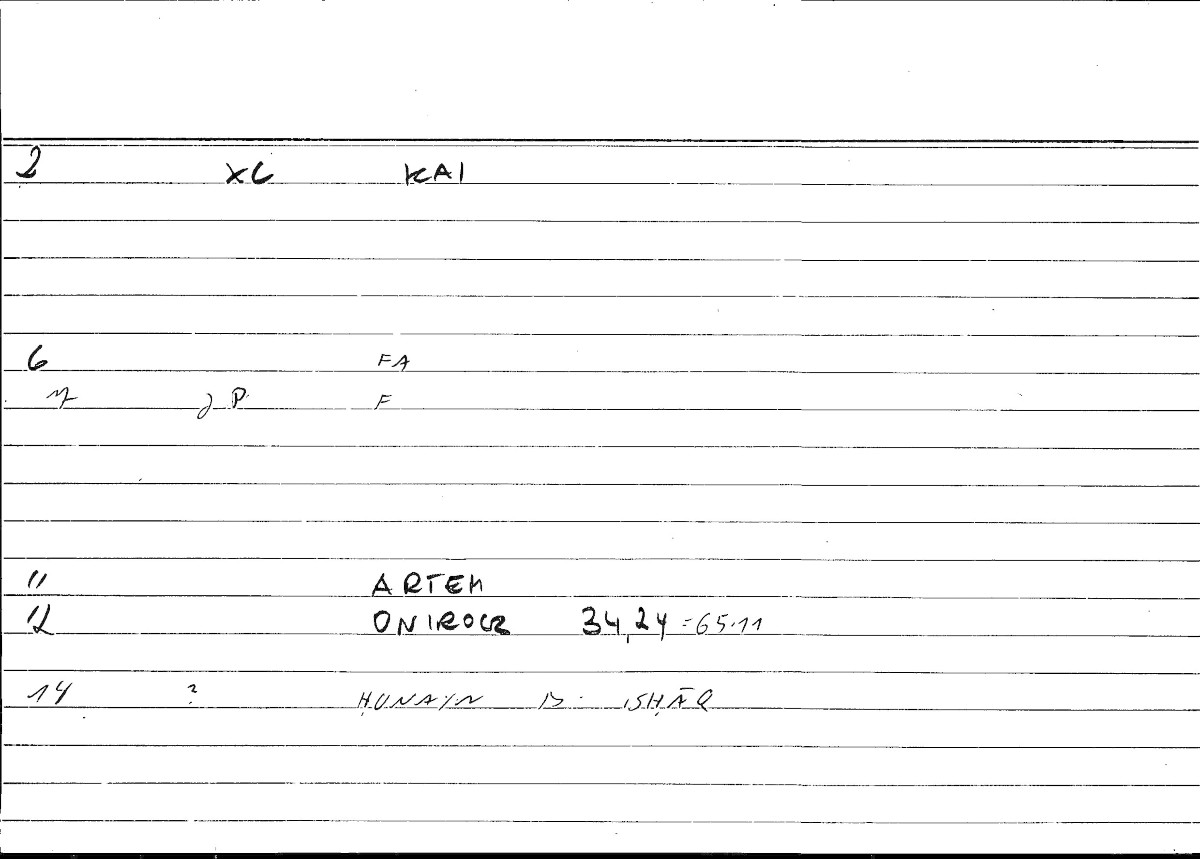 2 XC KAI
6 FA
P F
11 ARTEM
12 ONIROCR 34,24 = 65.11
14 ? ḤUNAYN B. ISḤĀQ